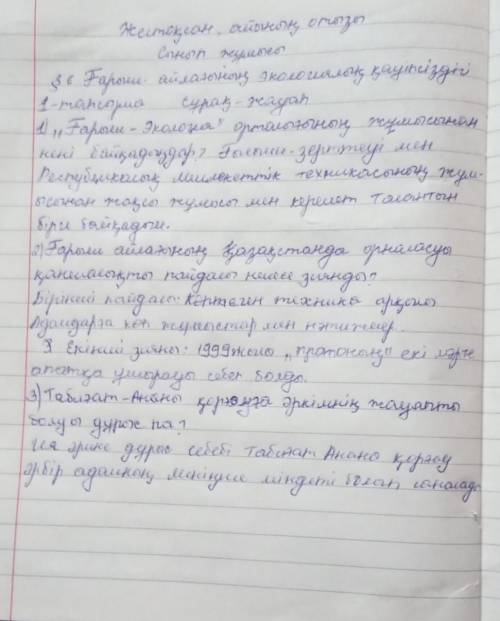 Желтоқсан, айының отызы
Сынып жұмысы
§6 Ғарыш айлағының экологиялық қауіпсіздігі
1-тапсырма сұрақ-жауап
1) "Ғарыш-Экология" орталығының жұмысынан
нені байқадыңдар? Ғылыми-зерттеуі мен
Республикалық мемлекеттік техникасының жұм-
ысынан жақсы жұмысы мен керемет талантын
бірге байқадым.
2) Ғарыш айлағының Қазақстанда орналасуы
қаншалықты пайдалы немесе зиянды?
Бірінші пайдалы: Көптеген техника арқылы
Адамдарға көп жұмыстар мен нәтижелер.
Екінші зияны: 1999 жылы "протоның" екі мәрте
апатқа ұшырауы себеп болды.
3) Табиғат-Ананы қорғауға әркімнің жауапты
болуы дұрыс па?
Ия әрине дұрыс себебі Табиғат Ананы қорғау
әрбір адамның міндеті болып саналады